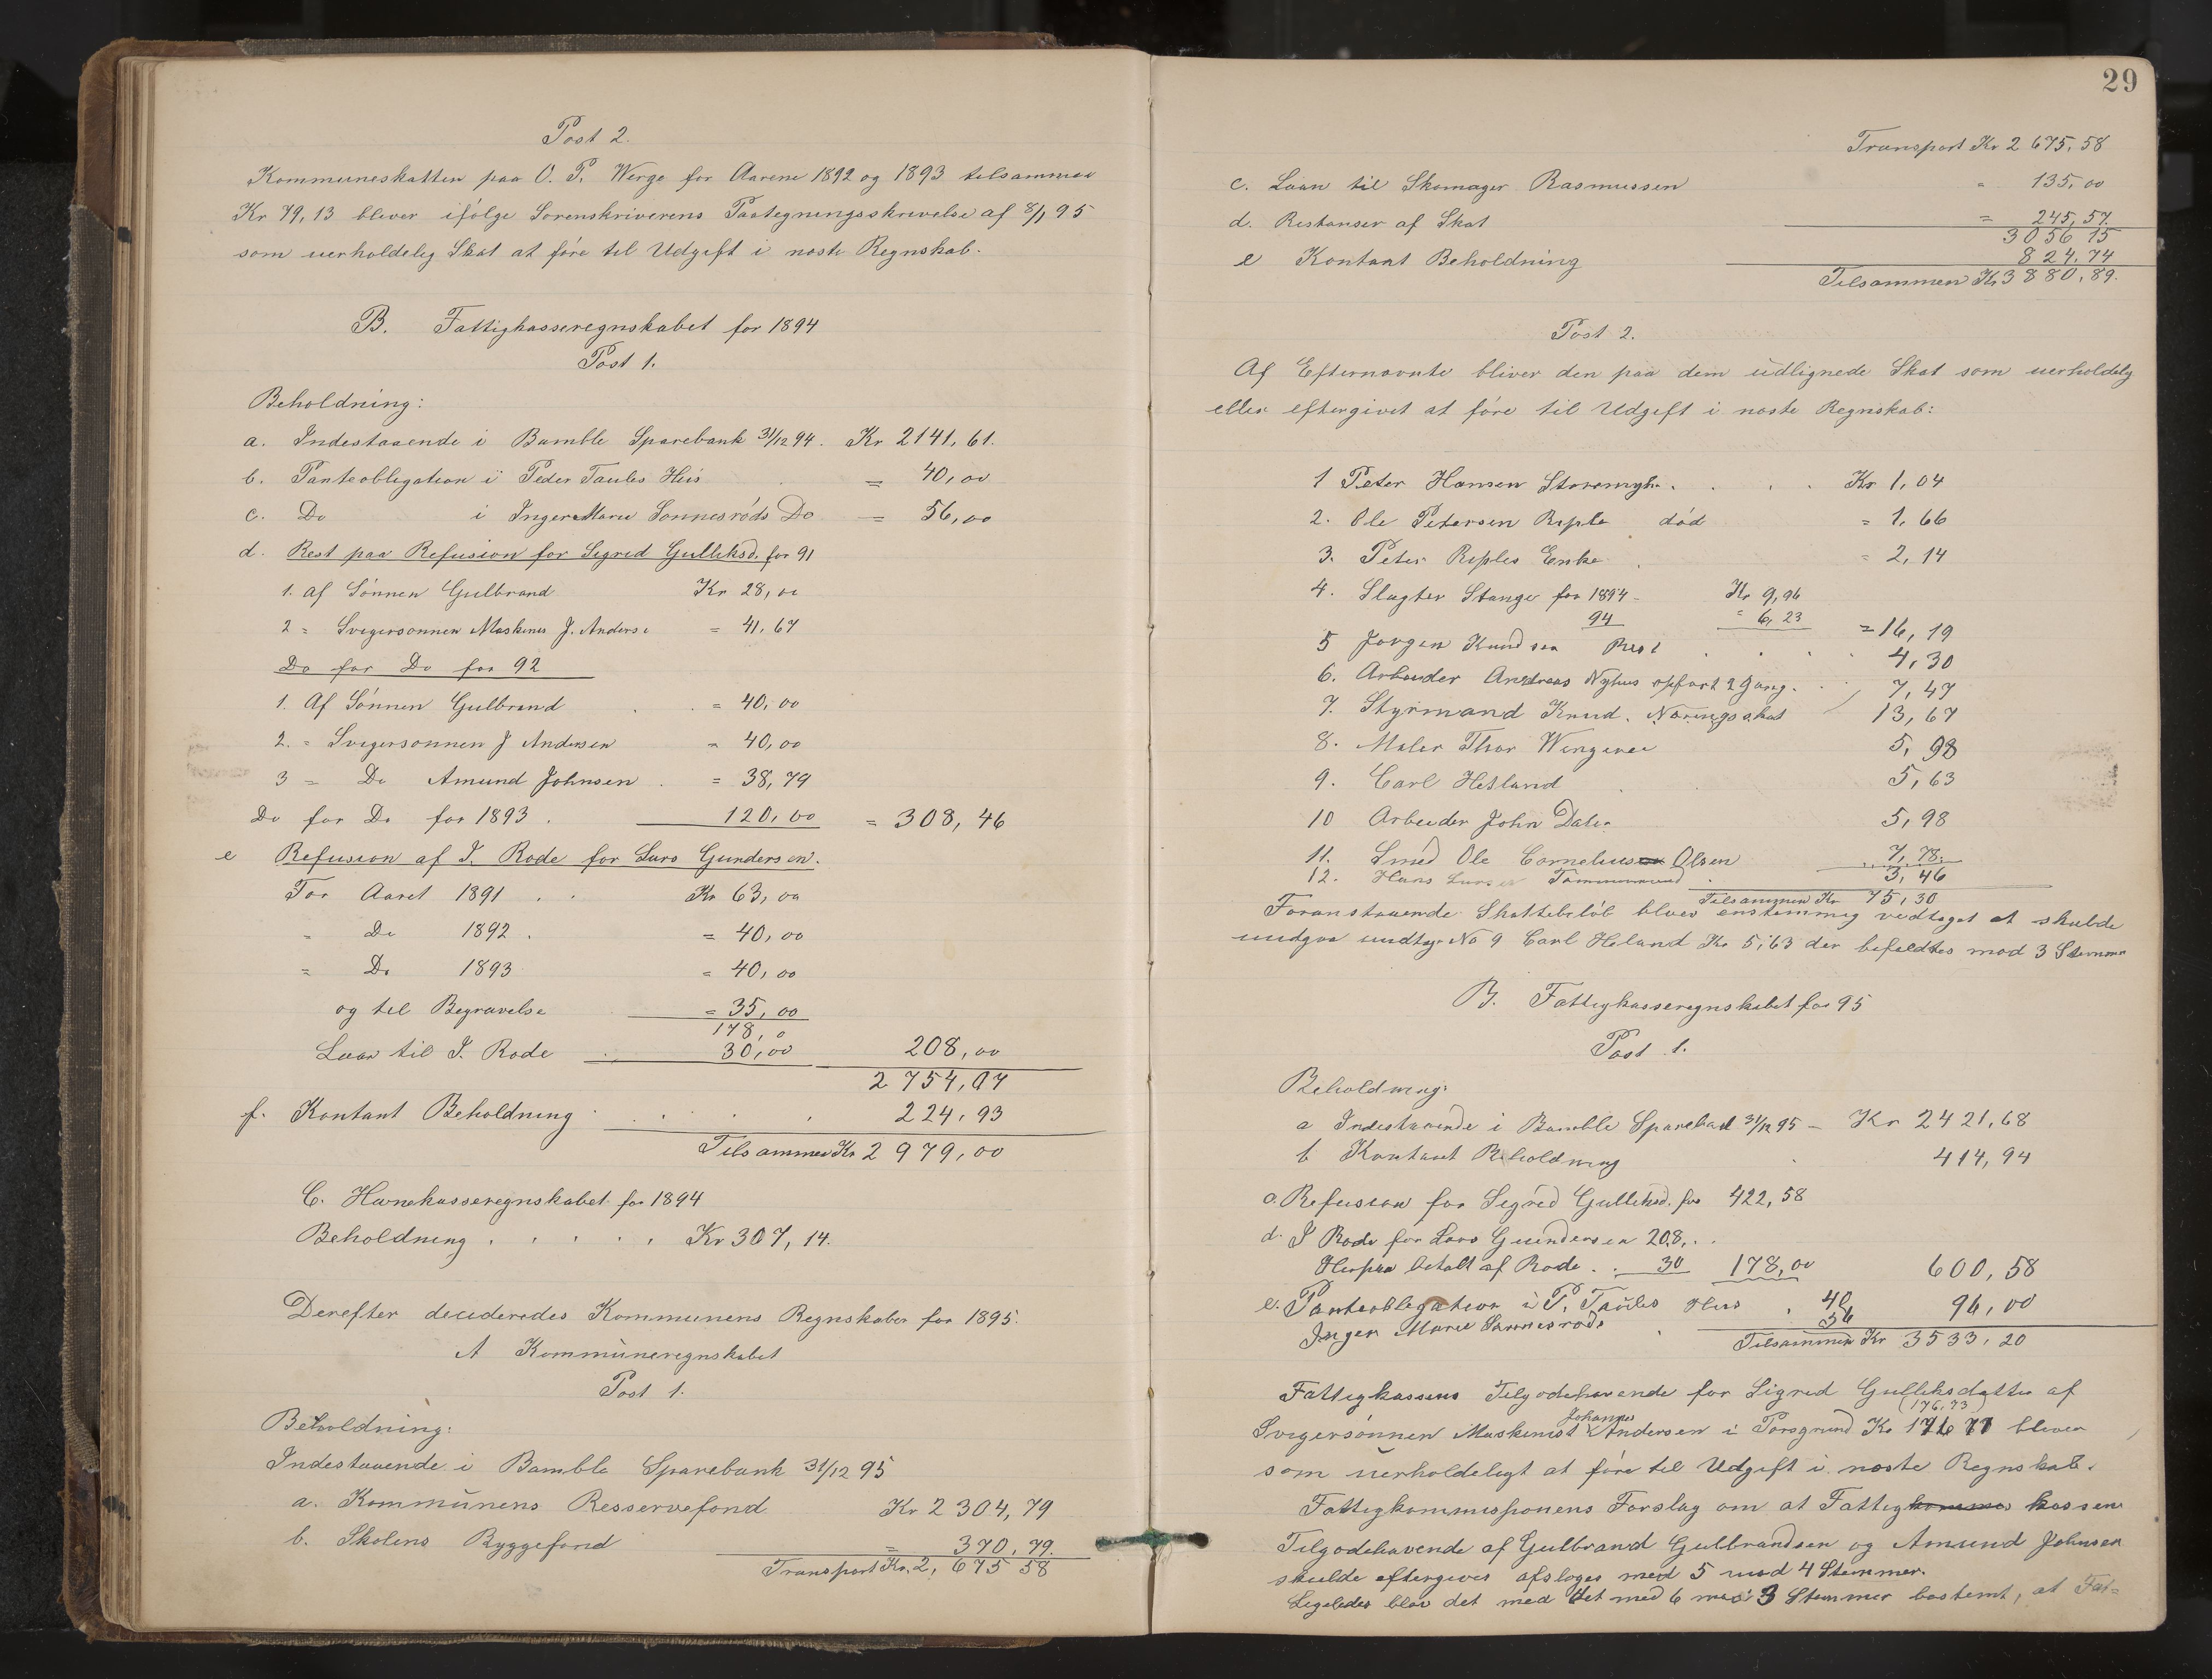 Post 2.
Kommuneskatten paa O. P. Werge for Aarene 1892 og 1893 tilsammen
Kr 79,13 bliver ifölge Sorenskriverens Paategningsskrivelse af 8/1 95
som uerholdelig Skat at före til Udgift i næste Regnskab.
B. Fattigkasseregnskabet for 1894
Post 1.
Beholdning:
a. Indestaaende i Bamble Sparebank 31/12 94. Kr 2141,61.
b. Panteobligation i Peder Taules Hus = 40,00
c. Do i Inger Marie Sannesröds Do = 56,00
d. Rest paa Refusion for Sigrid Gulliksd. for 91
1. af Sönnen Gulbrand Kr 28,00
2 = Svigersönnen Maskinis J. Anderse = 41,67
Do for Do for 92
1. Af Sönnen Gulbrand = 40,00
2. = Svigersönnen J Andersen = 40,00
3 = Do Amund Johnsen = 38,79
Do for Do for 1893 120,00 = 308,46
e Refusion af I. Rode for Lars Gundersen.
For Aaret 1891 Kr 63,00
= Do 1892 = 40,00
= Do 1893 = 40,00
og til Begravelse = 35,00
178,0
Laan til I. Rode 30,00 208,00
2754,07
f. Kontant Beholdning 224,93
Tilsammen Kr 2979,00
C. Havnekasseregnskabet for 1894
Beholdning Kr 307,14.
Derefter decideredes Kommunens Regnskaber for 1895.
A Kommüneregnskabet
Post 1.
Beholdning:
Indestaaende i Bamble Sparebank 31/12 95
a. Kommünens Resservefond Kr 2304,79
b. Skolens Byggefond = 370,79.
Transport Kr. 2,675 58
29
Transport Kr 2675,58
c. Laan til Skomager Rasmussen = 135,00
d. Restanser af Skat = 245,57
3056 15
e Kontant Beholdning 824,74
Tilsammen Kr 3880,89.
Post 2.
Af Efternævnte bliver den paa dem üdlignede Skat som uerholdelig
eller eftergivet at före til Udgift i næste Regnskab:
1 Peter Hansen Kr 1,04
2. Ole Petersen Riple död = 1,66
3. Peter Riples Enke = 2,14
4. Slagter Stange for 1894 - Kr 9,96
94 = 6,23 = 16,19
5 Jörgen Knudsen Rest 4,30
6. Arbeider Andreas Nyhus opfört 2 Gang. 7,47
7. Styrmand Knud. Næringsskat 13,67
8. Maler Thor Wingeree 5,98
9. Carl Hetland 5,63
10 Arbeider John Dale 5,98
11. Smed Ole Cornelius Olsen 7,78
12. Hans Larsen Tömmermand 3,46
Tilsammen Kr 75,30
Foranstaaende Skattebelöb blev enstemmig vedtaget at skulde
undgaa undtag. No 9 Carl Heland Kr 5,63 der befaldtes mod 3 Stemmer
B. Fattigkasseregnskabet for 95
Post 1.
Beholdning:
a Indestaaende i Bamble Sparebank 31/12 95 - Kr 2421,68
b Kontant Beholdning 414,94
c. Refusion for Sigrid Gulliksd. for 422,58
d. I Rode for Lars Gundersen 208,..
Herpaa betalt af Rode 30 178,00 600,58
e. Panteobligation i P. Taules Hus 40 96,00
Inger Marie Sannesröds 56
Tilsammen Kr 3533,20
Fattigkassens Tilgodehavende for Sigrid Gulliksdatter af
(176,73)
Johannes
Svigersönnen Maskinist Andersen i Porsgrund Kr 176 71 bliver
som üerholdeligt at före til Udgift i næste Regnskab.
Fattigkommissionens Forslag om at Fattigkommis kassens
Tilgodehavende af Gulbrand Gulbrandsen og Amund Johnsen
skulde eftergives afsloges med 5 mod 4 Stemmer.
Ligeledes blev det med det med 6 mod 3 Stemmer bestemt, at Fat=